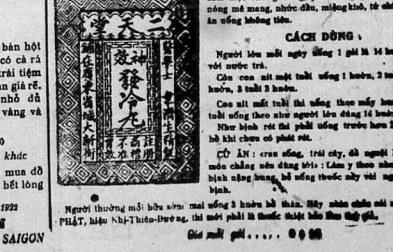 bán hột
có cà rá
trái tiệm
an giá rẽ.
nhỏ dủ
vàng và
khác
mua đồ
hết lòng
1922
SAIGON
堂天二
神效
發冷丸
醫學士
韋濟生精製
歸在廣東省城大新街
nóng mê mang, nhức đầu, miệng khô, tê chân
ăn uống không tiêu.
CÁCH DÙNG :
Người lớn mỗi ngày uống 1 gói là 14 h
với nước trà.
Còn con nít một tuổi uống 1 huờn, 2 tu
huờn, 3 tuổi 3 huờn.
Con nít mất tuổi thì uống theo mấy huờ
tuổi uống theo như người lớn đúng 14 huờn
Như bịnh rét thì phải uống trước hơn 2
hồ khi chưa có phát rét.
CỬ ĂN : cua sống, trái cây, đồ nguội
món chẳng nên dùng tới : Làm y theo như
bịnh nặng hung, hễ uống thuốc nầy vài ng
bịnh.
Người thường mỗi bữa sớm mai uống 3 huờn bổ thần. Hãy nhìn chắc nơi
PHẬT, hiệu Nhị-Thiên-Đường, thì mới phải là thuốc thiệt
Giá mỗi gói